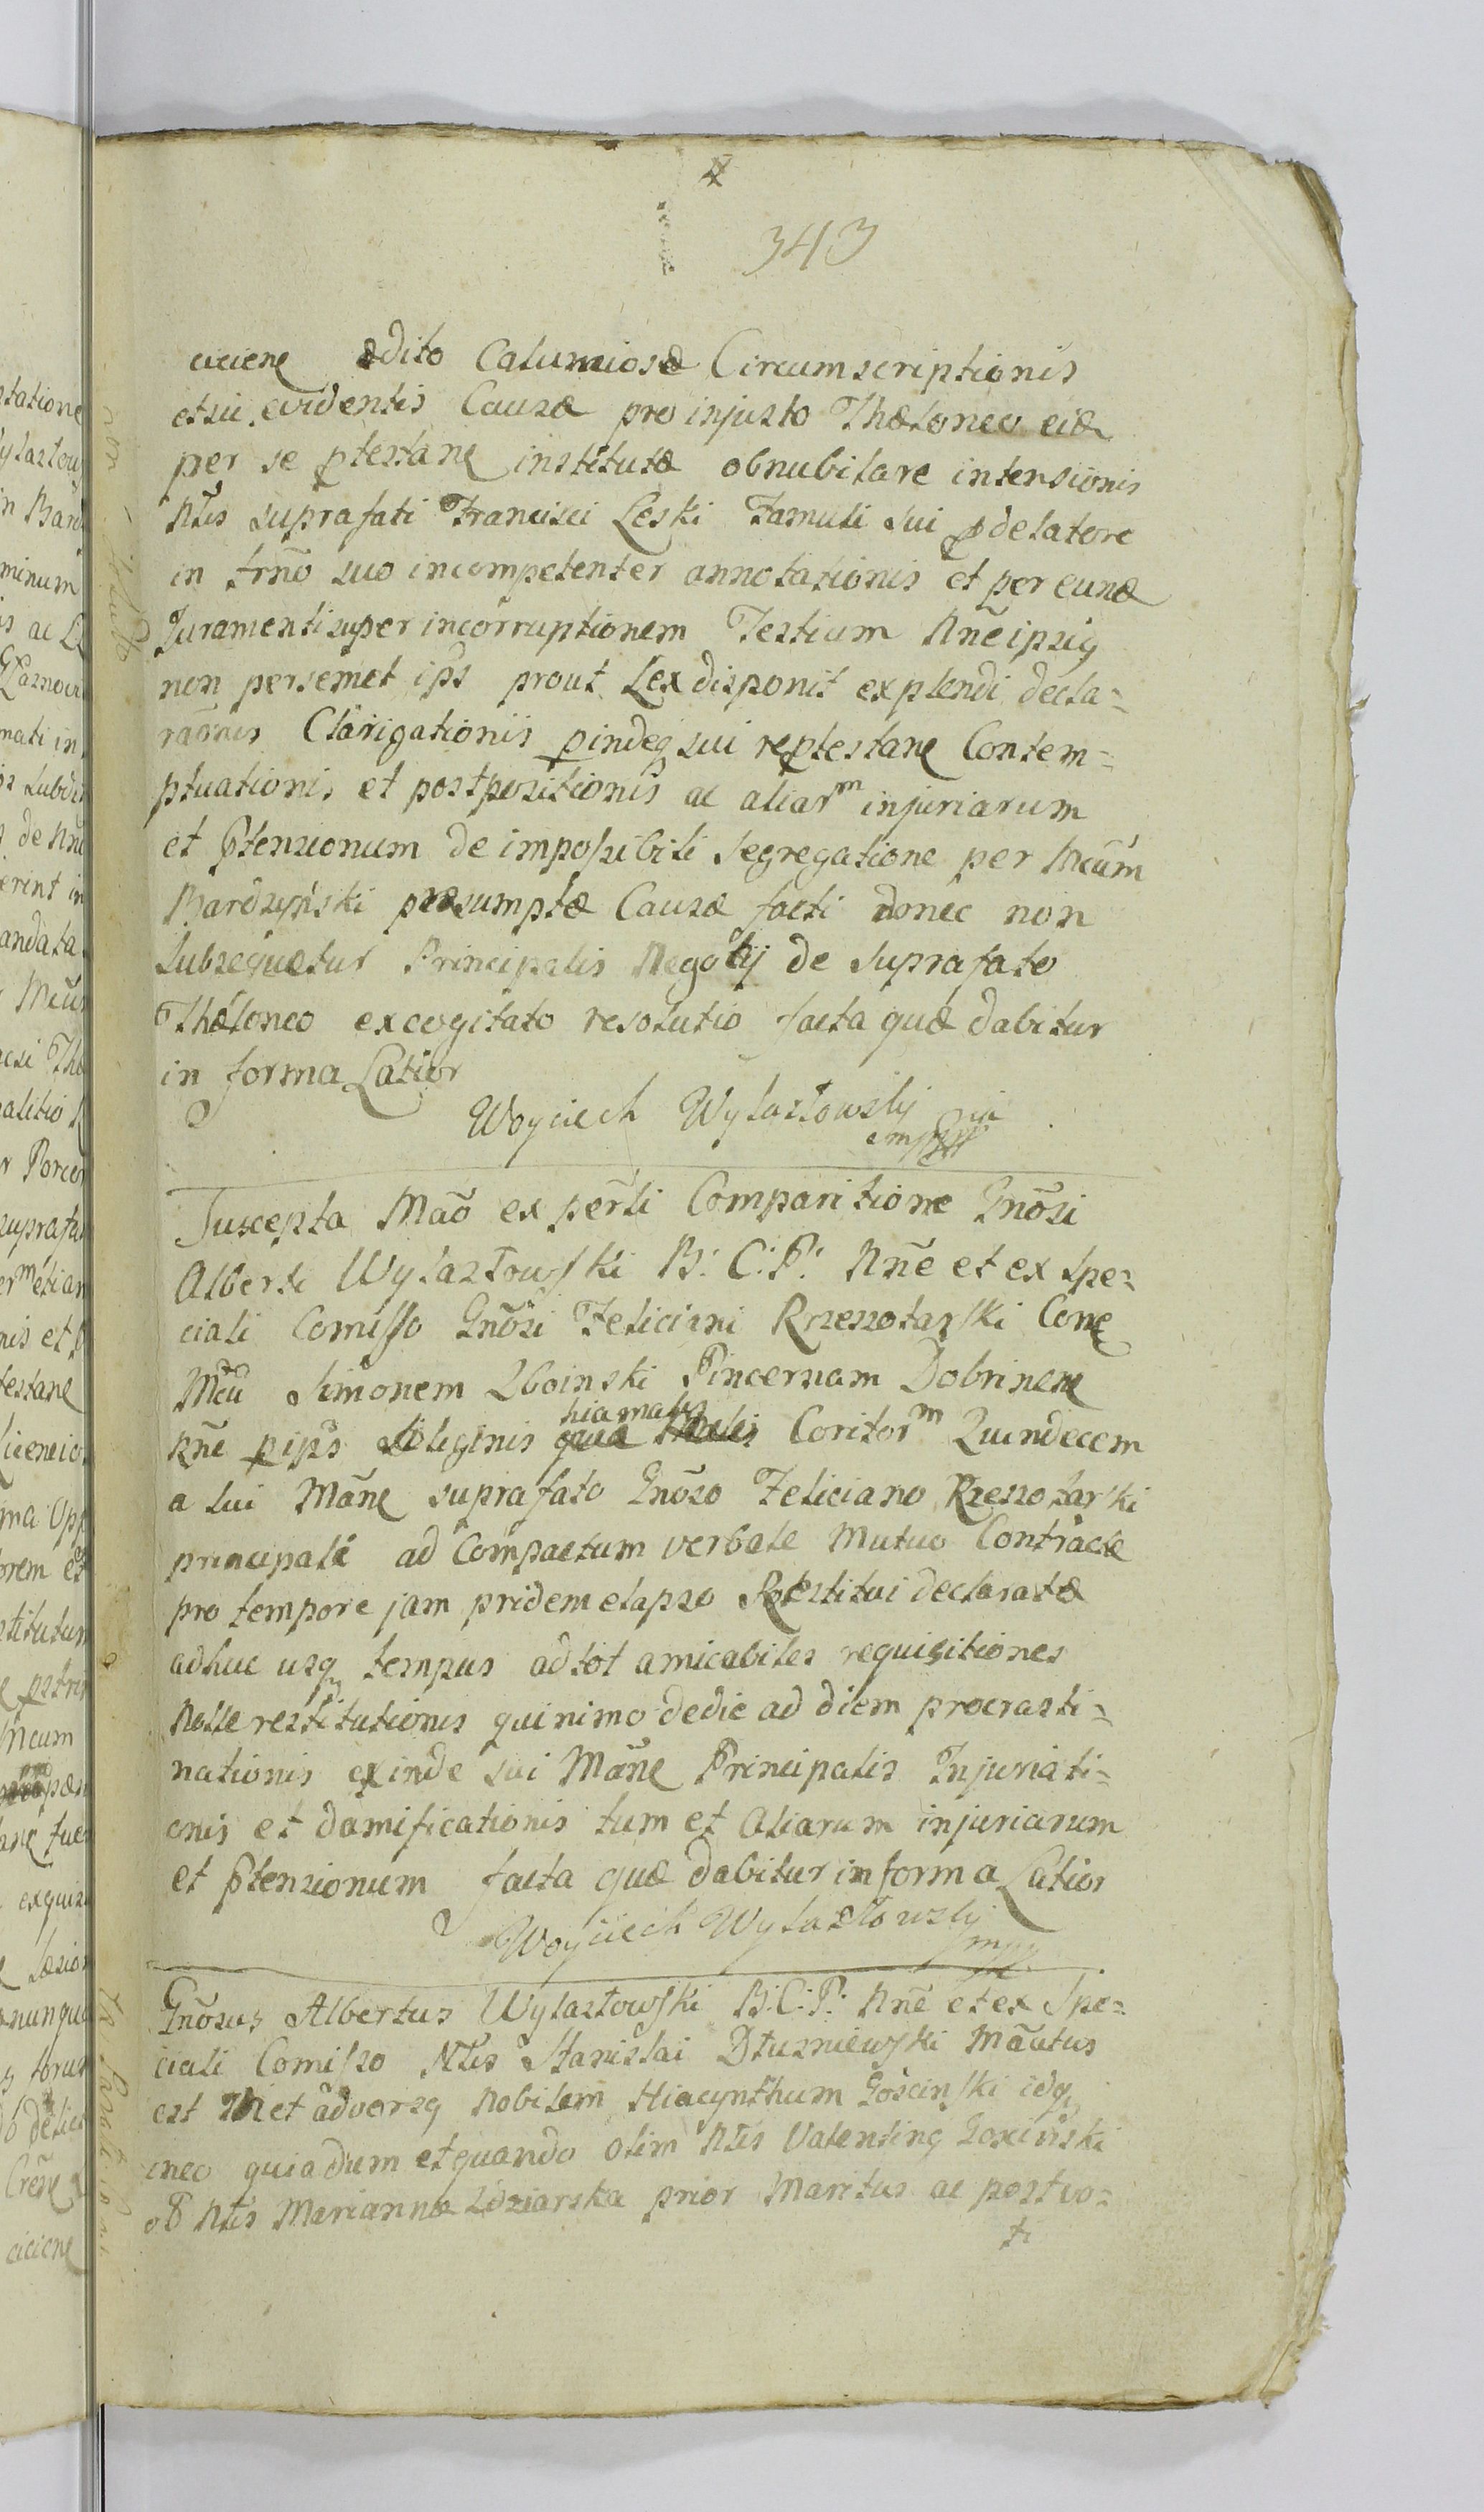 343
aciene edito Calumniosæ Circumscriptionis
et sui evidentis Causæ pro injusto Thæloneo eidæ
per se ptestane institutæ obnubilare intensionis
Ntis suprafati Francisci Leski Famuli sui p delatore
in trño suo incompetenter annotationis et per eunde
Juramenti super incorruptionem Testium Nñe ipsiq
non persemet ips prout Lex disponit explendi decla-
raõnis Clarigationis pindeq sui reptestane Contem-
ptuationis et postpositionis ac aliarᵐ injuriarum
et Ptensionum de impossibili segregatione per Mcũm
Bardzyński præsumptæ Causæ facti donec non
Subsequetur Principalis Negotij de suprafato
Thæloneo excogitato resolutio facta quæ dabitur
in forma Latior
Woyciech Wylazłowsky mpp
Suscepta Maõ ex perti Comparitione Gnõsi
Alberti Wylazłowski B: C: P: Nñe et ex spe-
ciali Comisso Gnõsi Feliciani Rzeszotarski Cone
Mcũ Simonem Zboinski Pincernam Dobrinene
Rñe p ips Siliginis hiamalis Coritorᵐ Quindecem
a sui Mãne suprafato Gnõso Feliciano Rzeszotarski
principale ad Compactum verbale Mutuo Contracte
pro tempore jam pridem elapso Restitui declaratæ
adhuc usq tempus ad tot amicabiles requisitiones
Nolle restitutionis quinimo dedie ad diem procrasti-
nationis exinde sui Mãne Principalis Injuriati-
onis et damificationis tum et Aliarum injuriarum
et Ptensionum facta quæ dabitur in forma Latior
Woyciech Wylazłowsky mpp
Gnõsus Albertus Wylazłowski B: C: P: Nñe et ex Spe-
ciali Comisso Ntis Stanislai Dłuzniewski Mãutus
est Met adversq Nobilem Hiacynthum Goscinski idq
ineo quia dum et quando olim Ntis Valentinq Goscinski
oB Ntis Marianna Zdziarska prior Maritus ac postvo-
ti